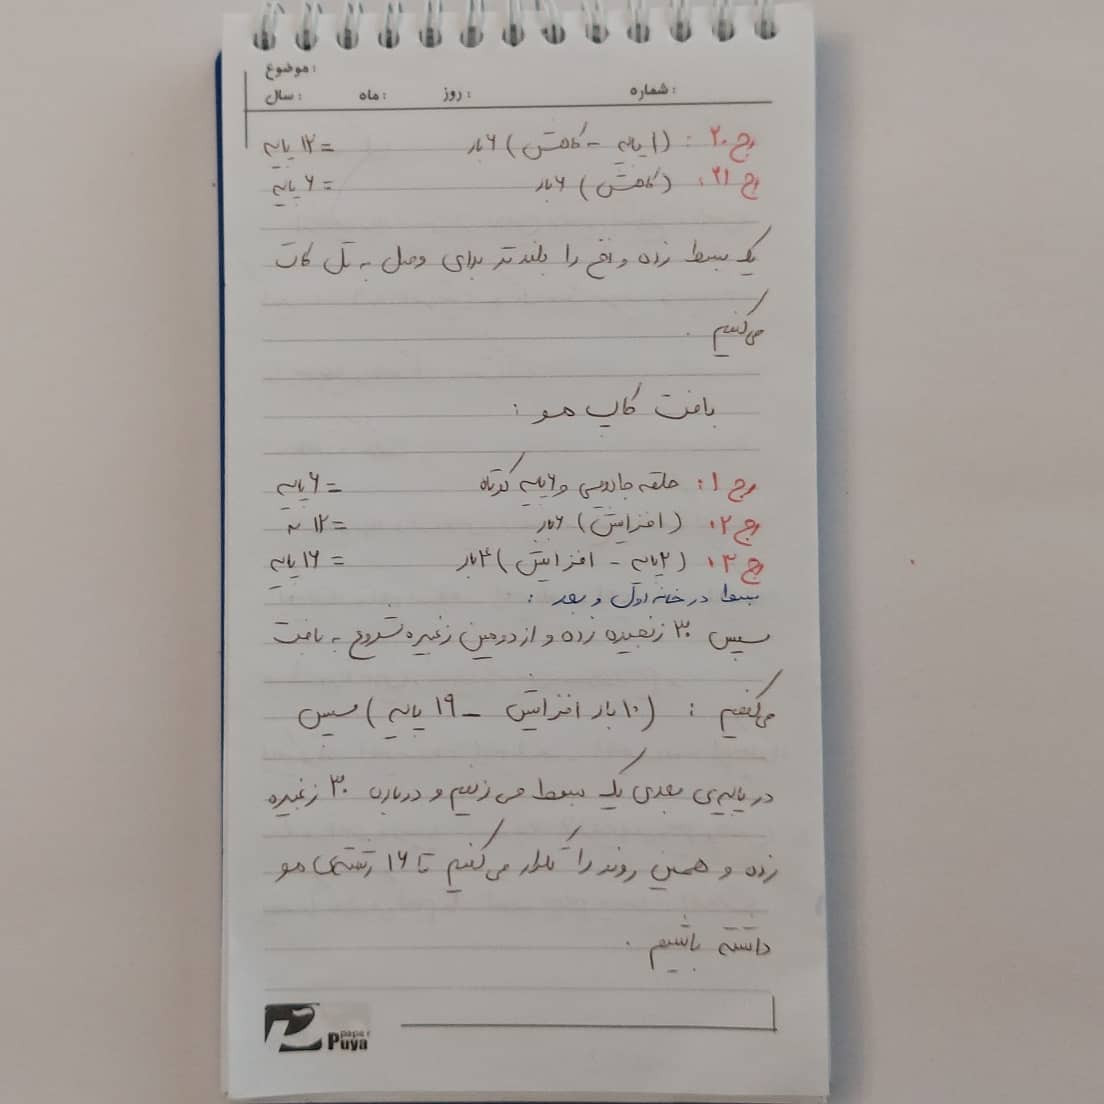 موضوع:
شماره: روز: ماه: سال:
رج ۲۰: (۱ پایه - کاهش) ۶ بار = ۱۲ پایه
رج ۲۱: (کاهش) ۶ بار = ۶ پایه
یک بسط زده و نخ را بلندتر برای وصل به تل کات
می‌کنیم.
بافت کاپ مو:
رج ۱: حلقه جادویی و ۶ پایه کوتاه = ۶ پایه
رج ۲: (افزایش) ۶ بار = ۱۲ پ
رج ۳: (۲ پایه - افزایش) ۴ بار = ۱۶ پایه
بسط در خانه اول و بعد:
سپس ۳۰ زنجیره زده و از دومین زنجیره شروع به بافت
می‌کنیم: (۱۰ بار افزایش - ۱۹ پایه) سپس
در پایه‌ی بعدی یک بسط می زنیم و دوباره ۳۰ زنجیره
زده و همین روند را تکرار می‌کنیم تا ۱۶ رشته‌ی مو
داشته باشیم.
paper
Puya